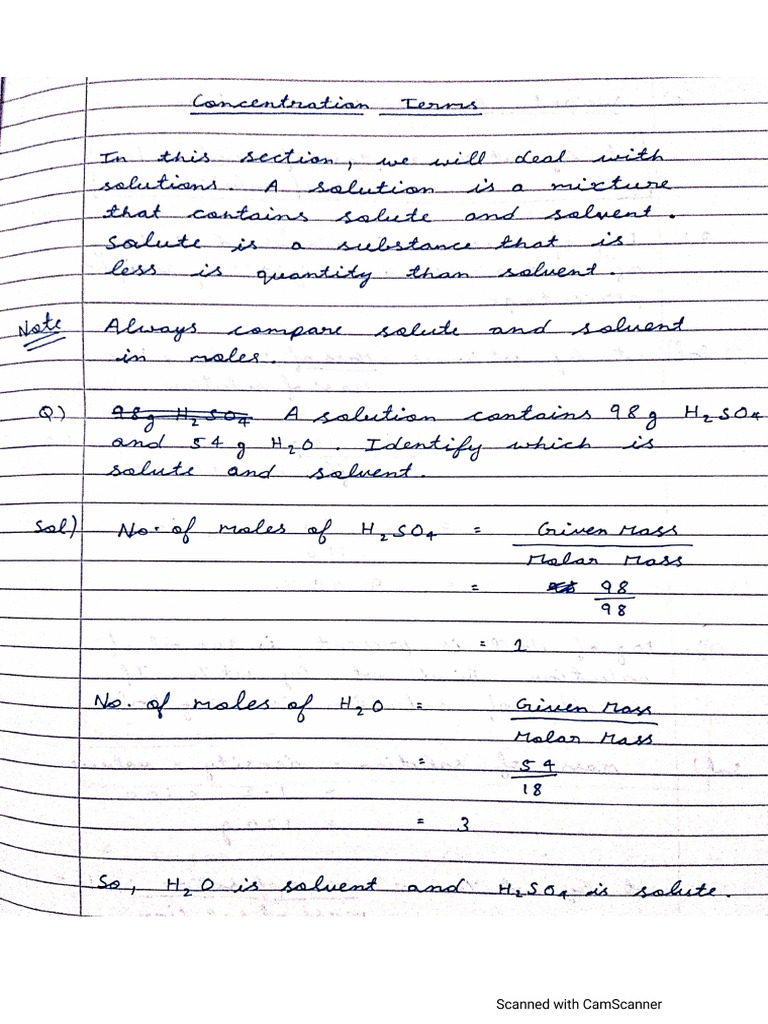 Concentration Terms
In this section, we will deal with
solutions. A solution is a mixture
that contains solute and solvent.
Solute is a substance that is
less is quantity than solvent.
Note Always compare solute and solvent
in moles.
Q) 98g H₂SO₄ A solution contains 98g H₂SO₄
and 54g H₂O. Identify which is
solute and solvent.
Sol) No. of moles of H₂SO₄ = Given Mass
Molar Mass
= 98
98
= 1
No. of moles of H₂O = Given Mass
Molar Mass
= 54
18
= 3
So, H₂O is solvent and H₂SO₄ is solute.
Scanned with CamScanner